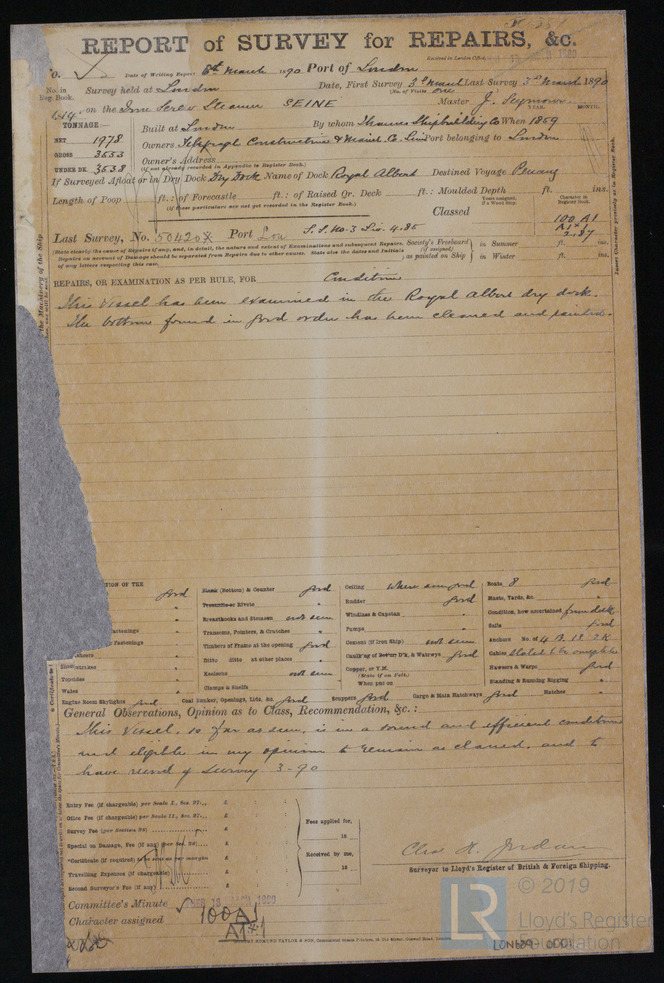 REPORT of SURVEY for REPAIRS, &c.
Received in London Office
No. Date of Writing Report 6th March 1890 Port of London
No. in Reg. Book. Survey held at London Date, First Survey 3d March Last Survey 3d March 1890
(No. of Visits one
on the Iron Screw Steamer SEINE Master J. Seymour
TONNAGE: Built at London By whom Thames Shipbuilding Co When 1859
YEAR. MONTH.
NET 1978 Owners Telegraph Construction & Maint. Co. Lim Port belonging to London
GROSS 3553 Owner's Address
(if not already recorded in Appendix to Register Book.)
UNDER DK. 3538
If Surveyed Afloat or in Dry Dock Dry Dock Name of Dock Royal Albert Destined Voyage Penang
Length of Poop ft.: of Forecastle ft.: of Raised Qr. Deck ft.: Moulded Depth ft. ins.
(If these particulars are not yet recorded in the Register Book.)
Classed
Character in Register Book.
100 A1
2.87
Last Survey, No. 50420 Port Lon S.S. No. 3 Lon. 4.85
(State clearly the cause of Repairs if any, and, in detail, the nature and extent of Examinations and subsequent Repairs.
Repairs on account of Damage should be separated from Repairs due to other causes. State also the dates and initials
of any letters respecting this case.)
Society's Freeboard (if assigned) as painted on Ship
in Summer ft. ins.
in Winter ft. ins.
REPAIRS, OR EXAMINATION AS PER RULE, FOR Condition
This Vessel has been examined in the Royal Albert dry dock.
The bottom found in good order has been cleaned and painted.
good
Plank (Bottom) & Counter good
Treenails or Rivets "
Breasthooks and Stemson not seen
Transoms, Pointers, & Crutches "
Timbers of Frame at the opening good
Ditto ditto at other places "
Keelsons not seen
Clamps & Shelfs
Ceiling where seen good
Rudder good
Windlass & Capstan "
Pumps "
Cement (if Iron Ship) not seen
Caulking of Bottom, D'k, & Waterways good
Copper, or Y.M.
(State if on Felt)
When put on
Boats 8 good
Masts, Yards, &c. "
Condition, how ascertained from deck
Sails good
Anchors No. of 4 B. 1 S. 2 K
Cables stated to be complete
Hawsers & Warps good
Standing & Running Rigging "
Topsides
Wales
Engine Room Skylights good Coal Bunker, Openings, Lids, &c. good Scuppers good Cargo & Main Hatchways good Hatches "
General Observations, Opinion as to Class, Recommendation, &c.:
This Vessel, so far as seen, is in a sound and efficient condition
and eligible in my opinion to remain as classed, and to
have record of survey 3-90
Entry Fee (if chargeable) per Scale I., Sec. 27... £
Office Fee (if chargeable) per Scale II., Sec. 27... £
Survey Fee (per Section 28) £
Special or Damage, Fee (if any) £
*Certificate (if required) £
Travelling Expenses (if chargeable) £
Second Surveyor's Fee (if any) £
Fees applied for,
18
Received by me,
18
Chas. H. Jordan
Surveyor to Lloyd's Register of British & Foreign Shipping.
Committee's Minute
Character assigned 100A1
© 2019
LR
Lloyd's Register
Foundation